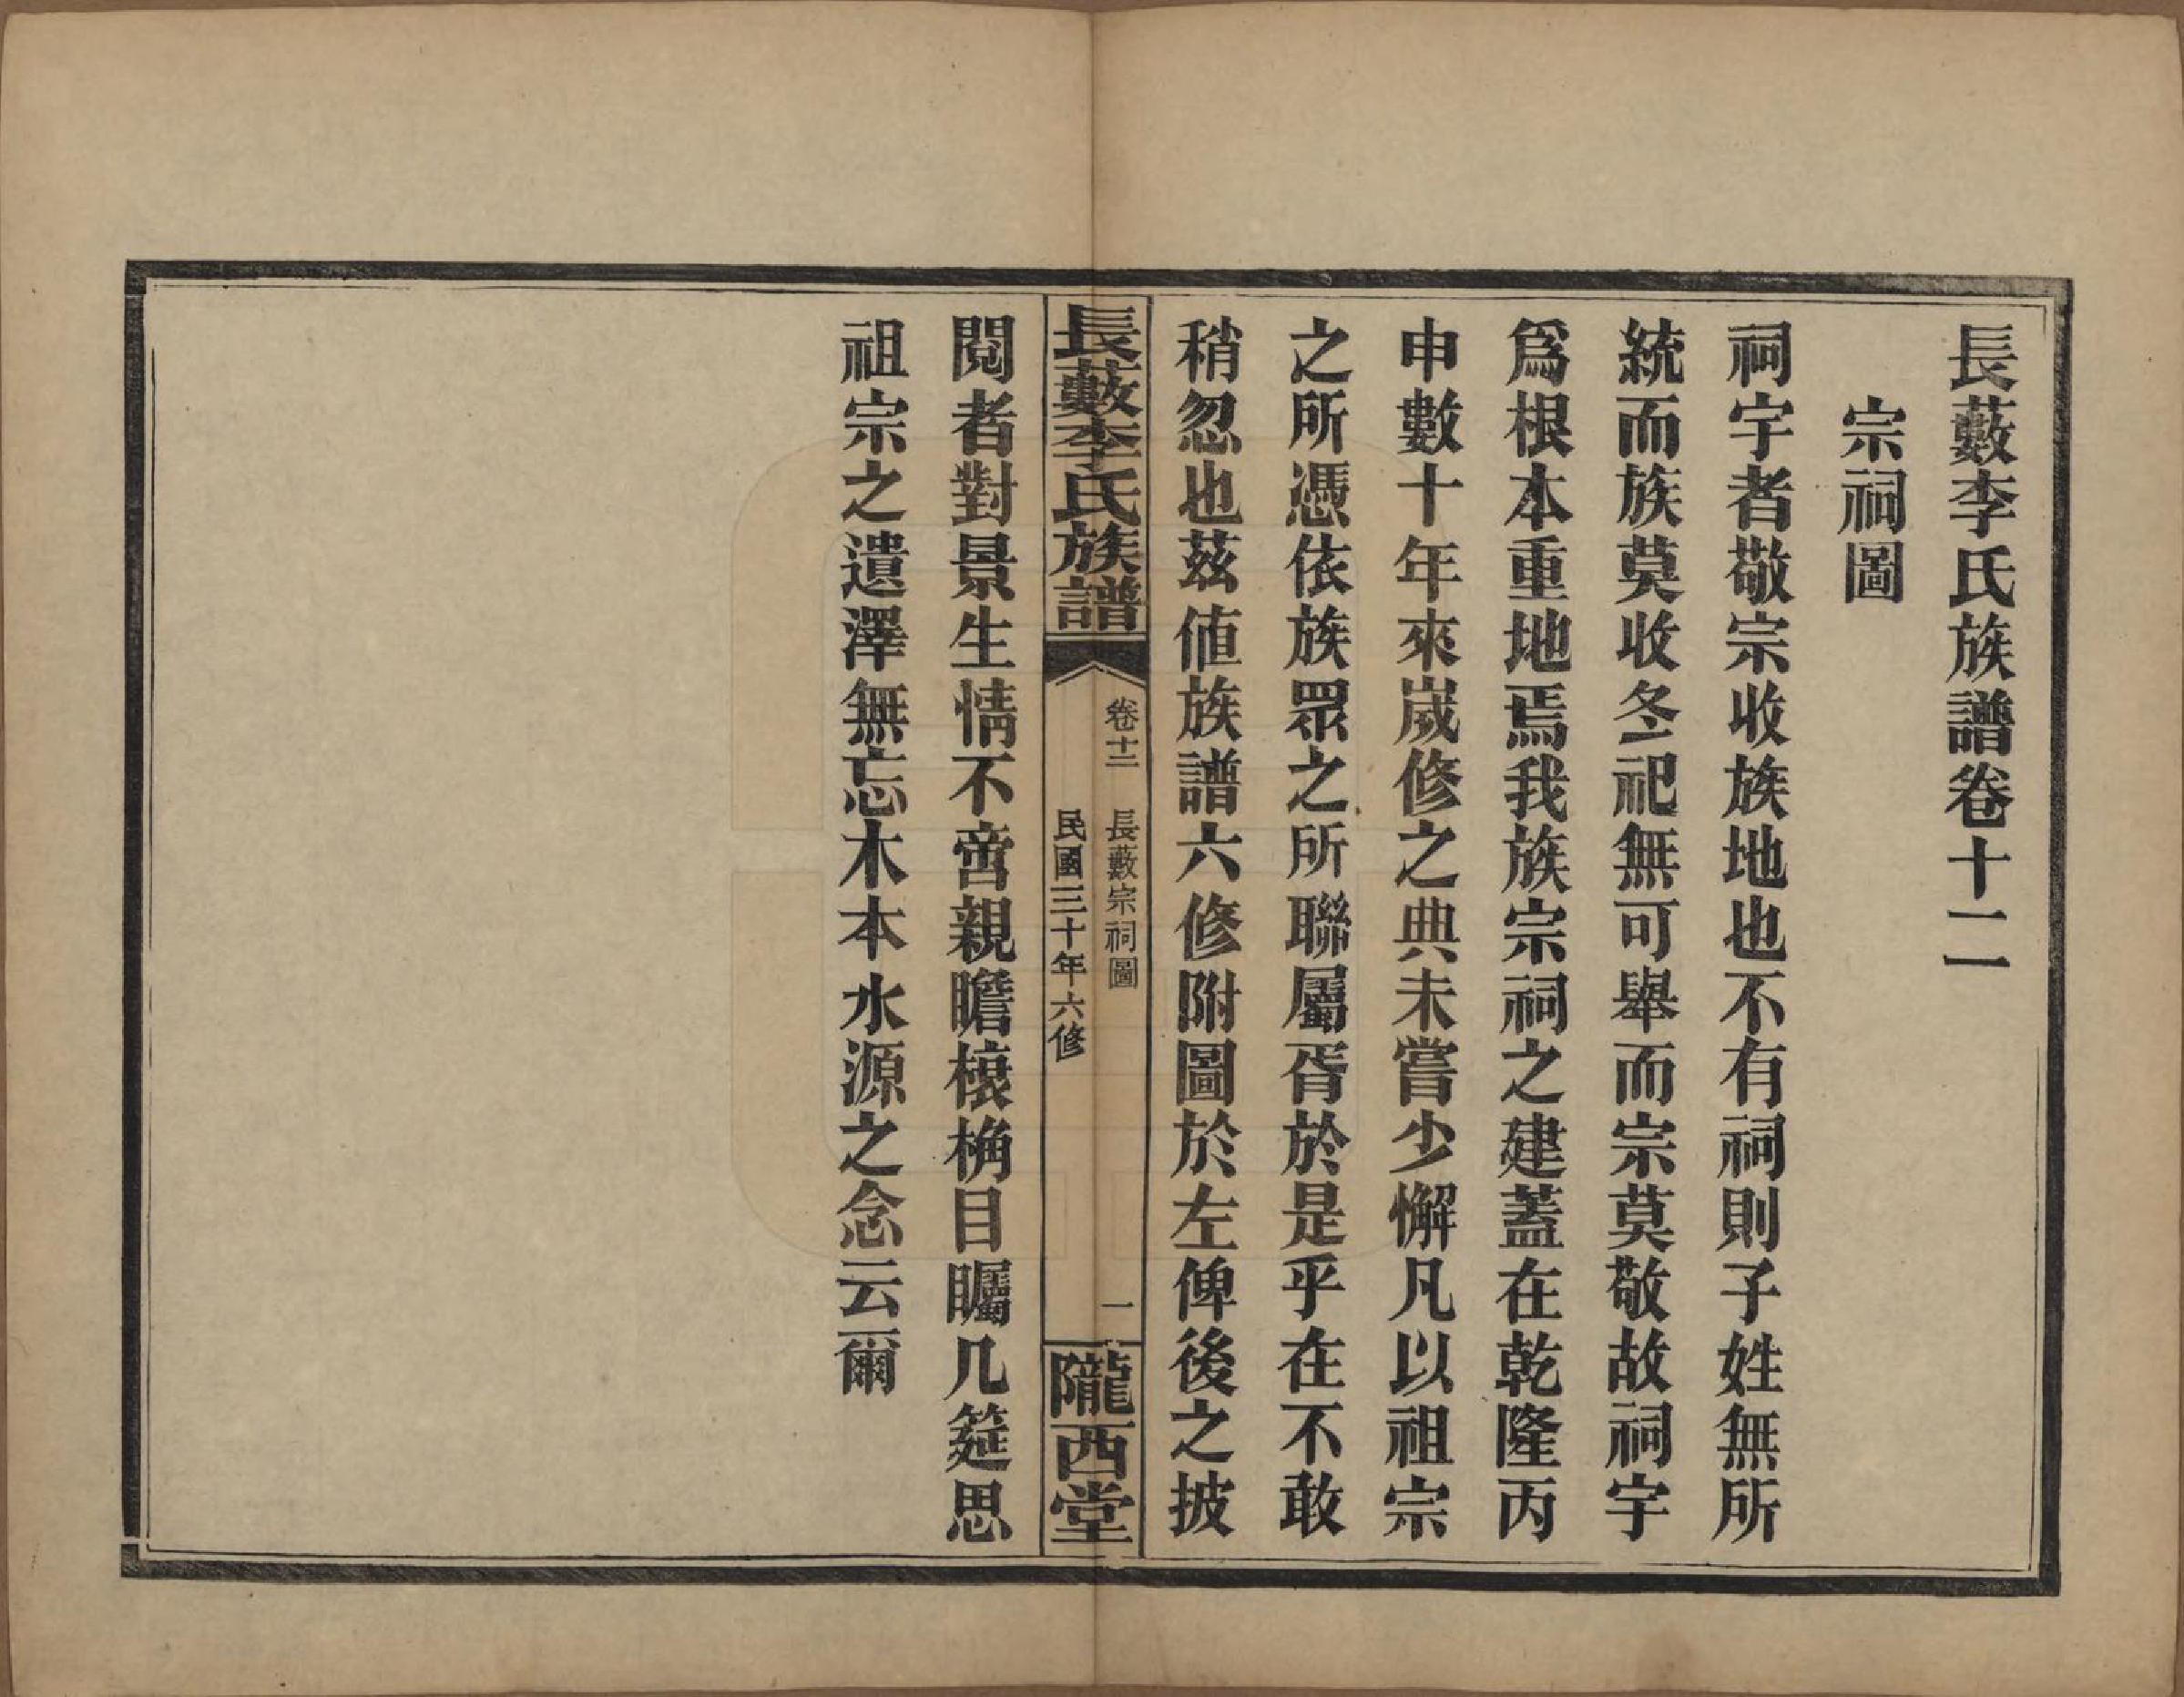 長藪李氏族譜卷十二
宗祠圖
祠宇者敬宗收族地也不有祠則子姓無所
統而族莫收冬祀無可舉而宗莫敬故祠宇
爲根本重地焉我族宗祠之建蓋在乾隆丙
申數十年來嵗修之典未嘗少懈凡以祖宗
之所憑依族眾之所聯屬胥於是乎在不敢
稍忽也茲值族譜六修附圖於左俾後之披
長藪李氏族譜
卷十二 長藪宗祠圖 一
民國三十年六修
隴西堂
閱者對景生情不啻親瞻榱桷目矚几筵思
祖宗之遺澤無忘木本水源之念云爾